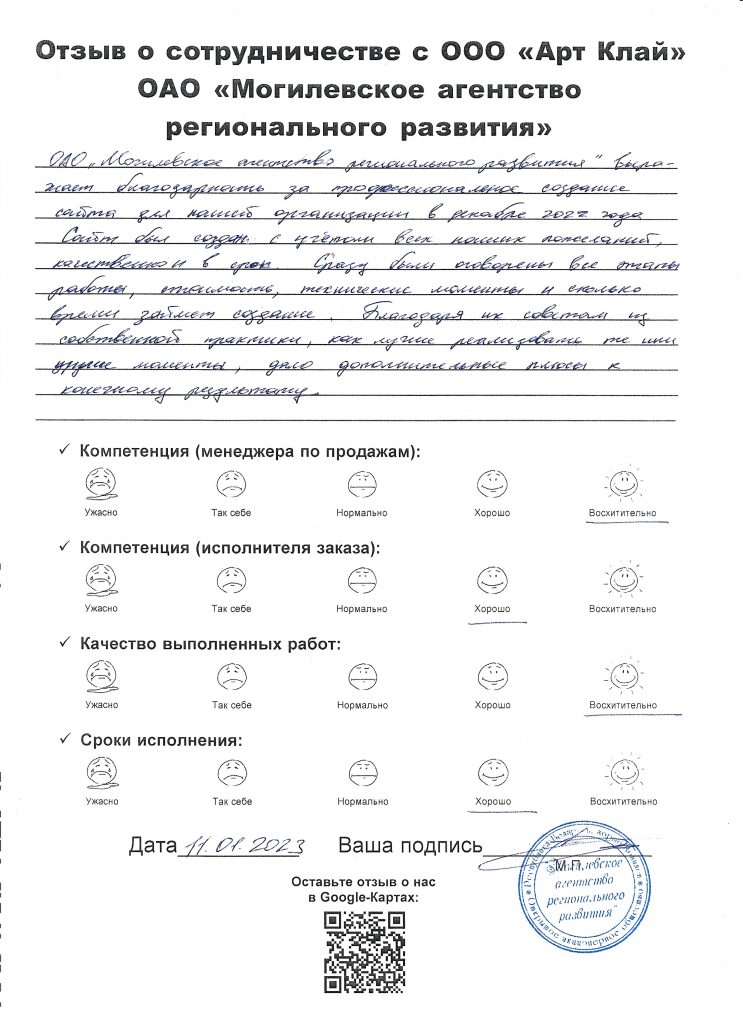 Отзыв о сотрудничестве с ООО «Арт Клай»
ОАО «Могилевское агентство
регионального развития»
ОАО „Могилевское агентство регионального развития" выра-
жает благодарность за профессиональное создание
сайта для нашей организации в декабре 2022 года
Сайт был создан с учётом всех наших пожеланий,
качественно и в срок. Сразу были оговорены все этапы
работы, стоимость, технические моменты и сколько
времени займет создание. Благодаря их советам из
собственной практики, как лучше реализовать те или
другие моменты, дало дополнительные плюсы к
конечному результату.
✓ Компетенция (менеджера по продажам):
Ужасно Так себе Нормально Хорошо Восхитительно
✓ Компетенция (исполнителя заказа):
Ужасно Так себе Нормально Хорошо Восхитительно
✓ Качество выполненных работ:
Ужасно Так себе Нормально Хорошо Восхитительно
✓ Сроки исполнения:
Ужасно Так себе Нормально Хорошо Восхитительно
Дата 11.01.2023 Ваша подпись
М.П.
Могилевское
агентство
регионального
развития"
Открытое акционерное общество
Оставьте отзыв о нас
в Google-Картах: